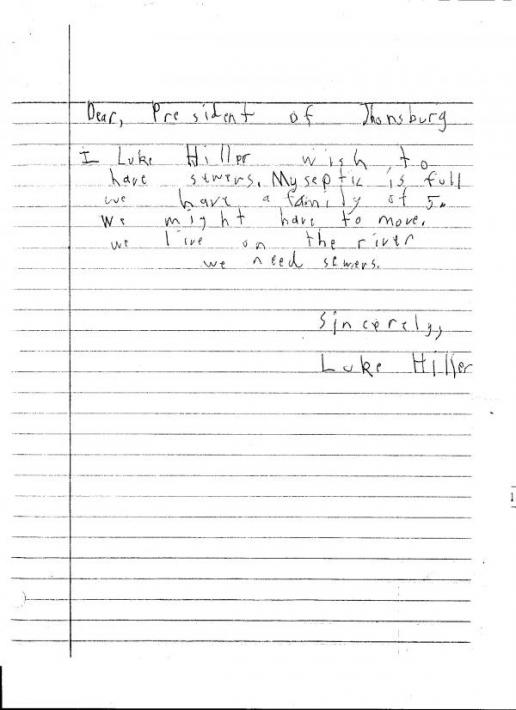 Dear, President of Jhonsburg
I Luke Hiller wish to
have sewers. My septic is full
we have a family of 5.
We might have to move.
we live on the river
we need sewers.
Sincerely,
Luke Hiller